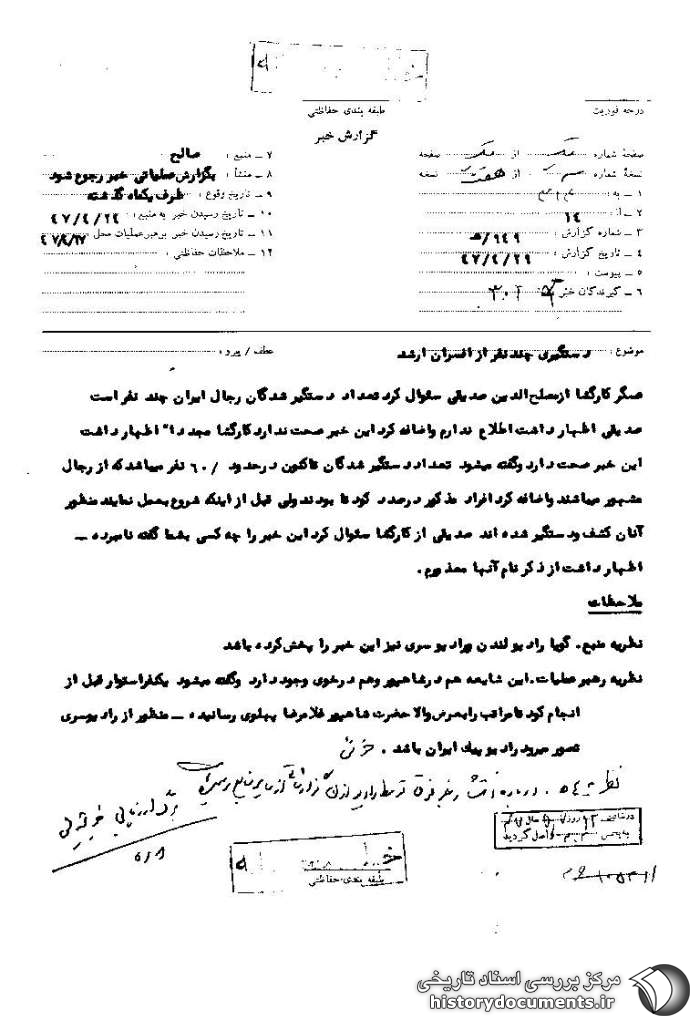 درجه فوریت
طبقه بندی حفاظتی
گزارش خبر
صفحه شماره یک از یک صفحه
نسخه شماره از هفت نسخه
۱ - به :
۲ - از : ۱۴
۳ - شماره گزارش : ۹۴۹/ه‍
۴ - تاریخ گزارش : ۴۷/۴/۲۹
۵ - پیوست :
۶ - گیرندگان خبر
۷ - منبع : صالح
۸ - منشأ : بگزارش عملیاتی خبر رجوع شود
۹ - تاریخ وقوع : ظرف یکماه گذشته
۱۰ - تاریخ رسیدن خبر به منبع : ۴۷/۴/۲۴
۱۱ - تاریخ رسیدن خبر برهبر عملیات محل ۴۷/۴/۲۷
۱۲ - ملاحظات حفاظتی :
موضوع : دستگیری چند نفر از افسران ارشد
عطف / پیرو :
عسگر کارگشا از مصلح‌الدین صدیقی سئوال کرد تعداد دستگیر شدگان رجال ایران چند نفر است
صدیقی اظهار داشت اطلاع ندارم و اضافه کرد این خبر صحت ندارد کارگشا مجددا" اظهار داشت
این خبر صحت دارد و گفته میشود تعداد دستگیر شدگان تاکنون در حدود ۶۰/ نفر میباشد که از رجال
مشهور میباشند و اضافه کرد افراد مذکور درصدد کودتا بودند ولی قبل از اینکه شروع بعمل نمایند منظور
آنان کشف و دستگیر شده اند صدیقی از کارگشا سئوال کرد این خبر را چه کسی بشما گفته نامبرده -
اظهار داشت از ذکر نام آنها معذورم .
ملاحظات
نظریه منبع . گویا رادیو لندن و رادیو سری نیز این خبر را پخش کرده باشد
نظریه رهبر عملیات . این شایعه هم در شاهپور وهم در خوی وجود دارد وگفته میشود یکنفر استوار قبل از
انجام کودتا مراتب را بعرض والا حضرت شاهپور غلامرضا پهلوی رسانیده - منظور از رادیو سری
تصور میرود رادیو پیک ایران باشد .
طبقه بندی حفاظتی
مرکز بررسی اسناد تاریخی
historydocuments.ir